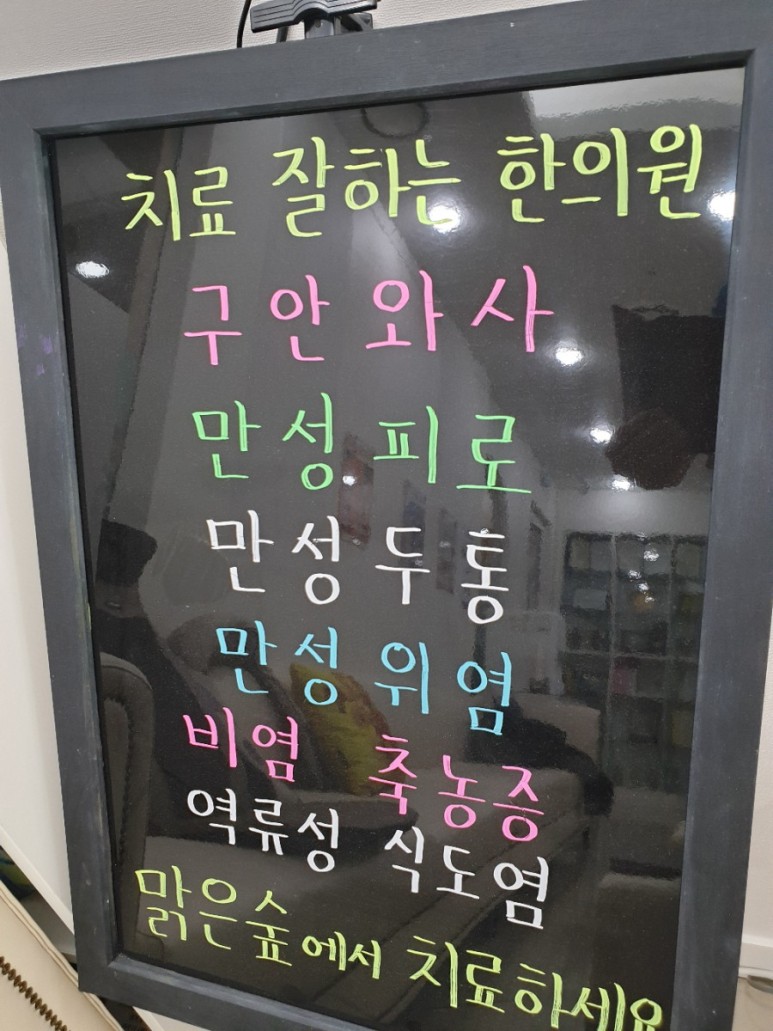 치료 잘하는 한의원
구안와사
만성피로
만성두통
만성위염
비염 축농증
역류성 식도염
맑은숲에서 치료하세요